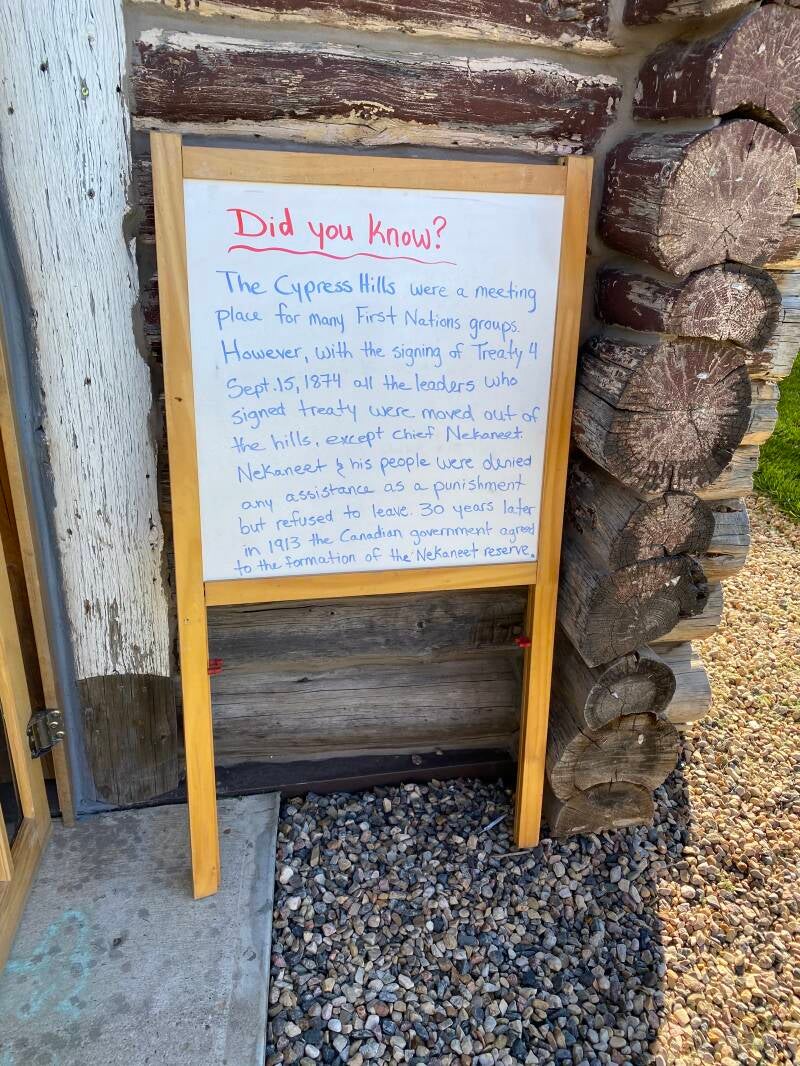 Did you know?
The Cypress Hills were a meeting
place for many First Nations groups.
However, with the signing of Treaty 4
Sept. 15, 1874 all the leaders who
signed treaty were moved out of
the hills, except Chief Nekaneet.
Nekaneet & his people were denied
any assistance as a punishment
but refused to leave. 30 years later
in 1913 the Canadian government agreed
to the formation of the Nekaneet reserve.